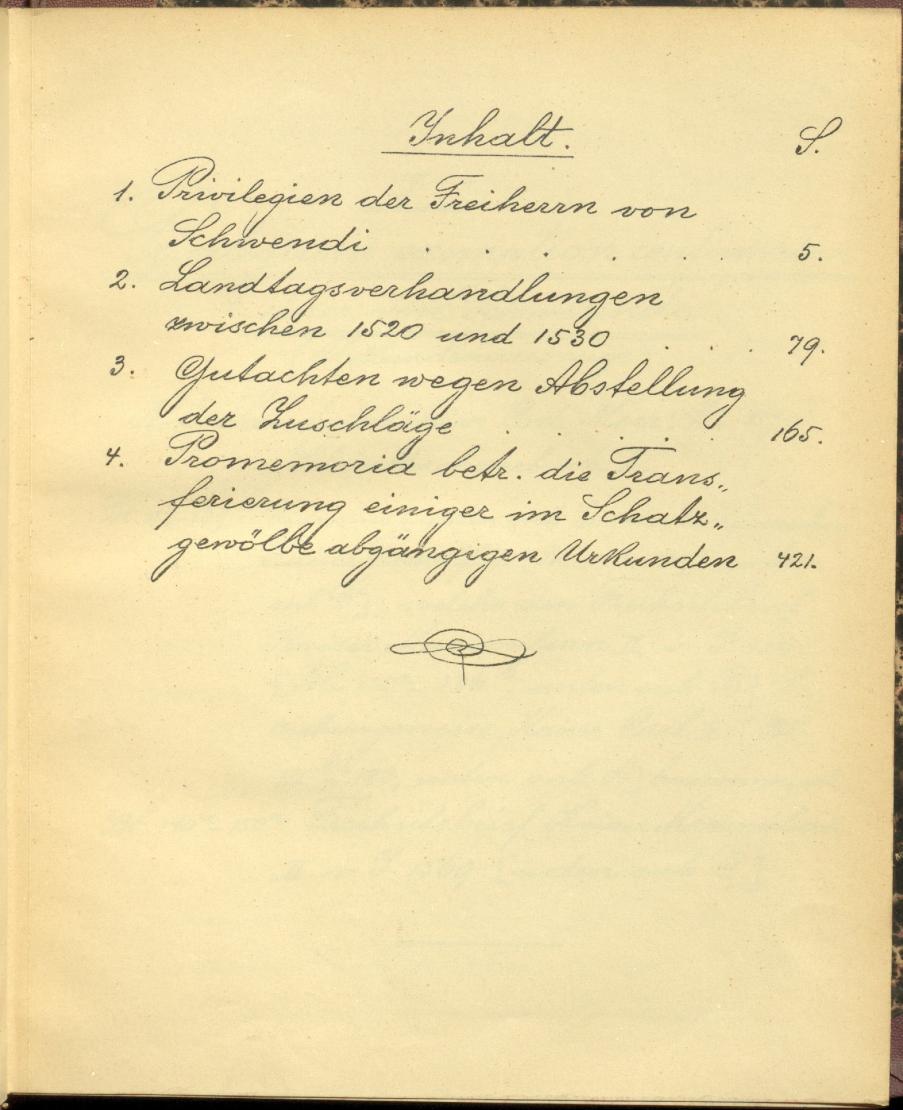 Inhalt. S.
1. Privilegien der Freiherrn von
Schwendi . . . . . . 5.
2. Landtagsverhandlungen
zwischen 1520 und 1530 . . . 79.
3. Gutachten wegen Abstellung
der Zuschläge . . . . . 165.
4. Promemoria betr. die Trans„
ferierung einiger im Schatz„
gewölbe abgängigen Urkunden 421.